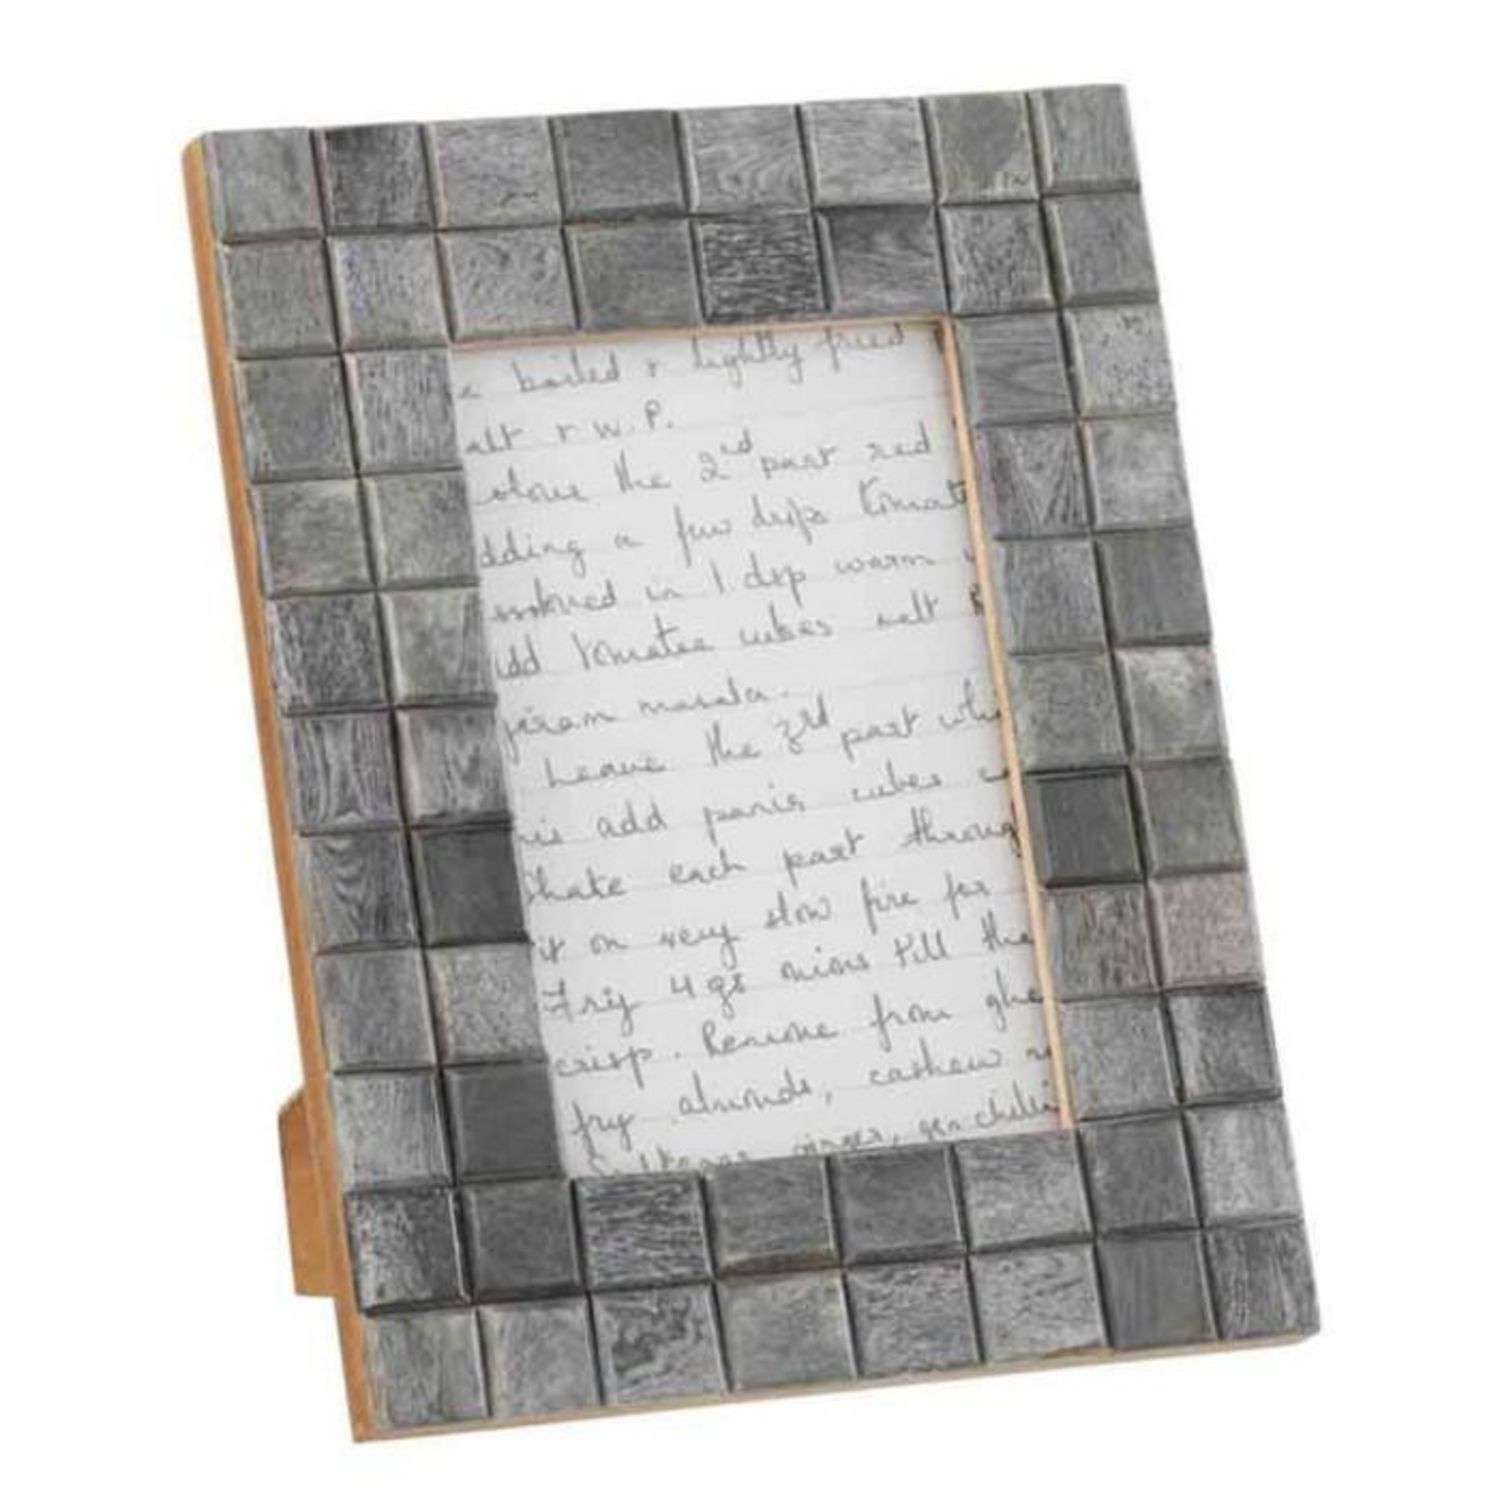 e boiled & lightly fried
alt & W.P.
olour the 2nd part red
dding a few drops tomat
ssolved in 1 dsp warm w
dd tomatoe cubes salt &
garam masala.
Leave the 3rd part whi
his add panir cubes
hake each part throug
it on very slow fire for
Fry 4 gs mins till the
crisp. Remove from ghe
fry almonds, cashew n
Sultanas ginger, grn chilli